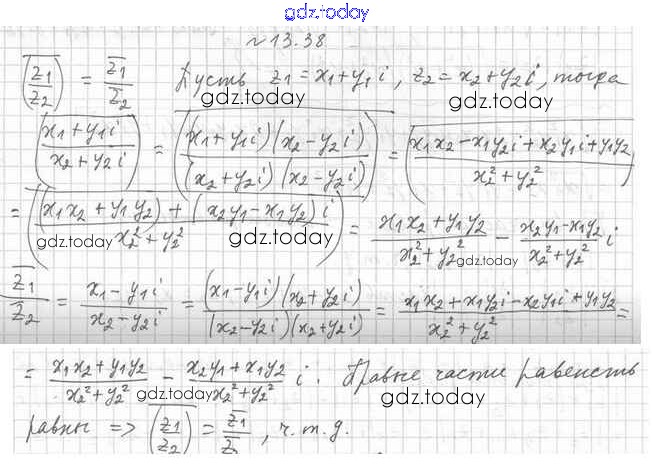 gdz.today
№13.38
\overline{(z1/z2)} = \overline{z1}/\overline{z2} Пусть z1 = x1 + y1 i, z2 = x2 + y2 i, тогда
gdz.today gdz.today
\overline{((x1 + y1 i)/(x2 + y2 i))} = \overline{((x1 + y1 i)(x2 - y2 i)/(x2 + y2 i)(x2 - y2 i))} = \overline{((x1 x2 - x1 y2 i + x2 y1 i + y1 y2)/(x2² + y2²))}
= \overline{(((x1 x2 + y1 y2) + (x2 y1 - x1 y2) i)/(x2² + y2²))} = (x1 x2 + y1 y2)/(x2² + y2²) - (x2 y1 - x1 y2)/(x2² + y2²) i
gdz.today gdz.today gdz.today
\overline{z1}/\overline{z2} = (x1 - y1 i)/(x2 - y2 i) = (x1 - y1 i)(x2 + y2 i)/(x2 - y2 i)(x2 + y2 i) = (x1 x2 + x1 y2 i - x2 y1 i + y1 y2)/(x2² + y2²) =
= (x1 x2 + y1 y2)/(x2² + y2²) - (x2 y1 + x1 y2)/(x2² + y2²) i. Правые части равенств
gdz.today gdz.today
равны => \overline{(z1/z2)} = \overline{z1}/\overline{z2}, ч.т.д.